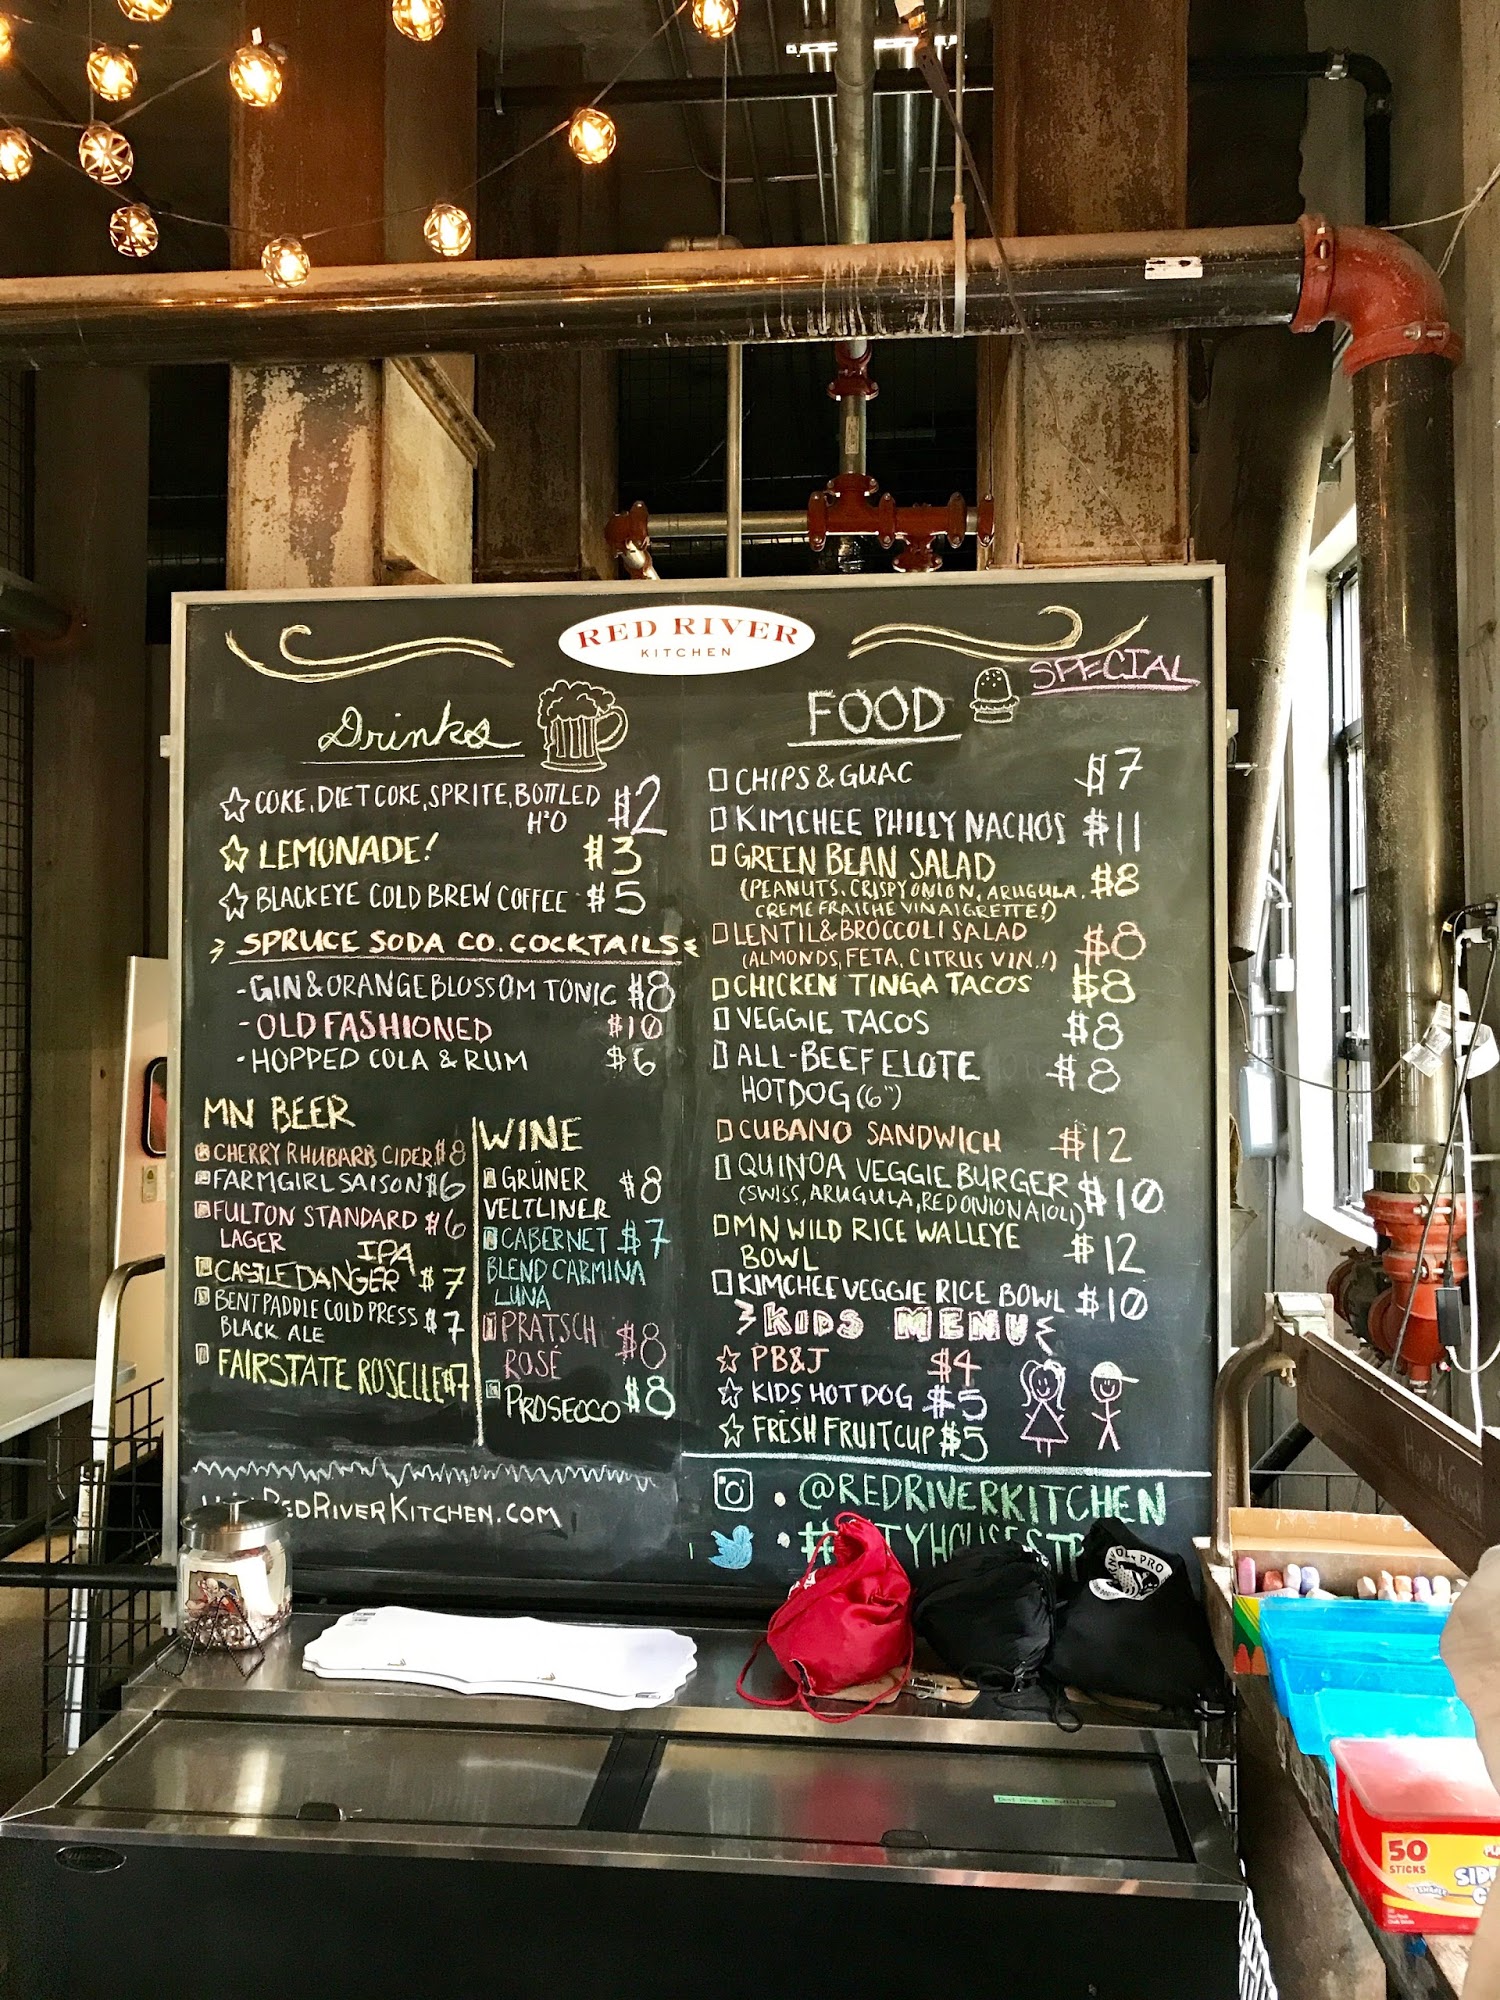 RED RIVER
KITCHEN
SPECIAL
Drinks
COKE, DIET COKE, SPRITE, BOTTLED $2
H2O
LEMONADE! $3
BLACKEYE COLD BREW COFFEE $5
SPRUCE SODA CO. COCKTAILS
-GIN & ORANGE BLOSSOM TONIC $8
-OLD FASHIONED $10
-HOPPED COLA & RUM $6
MN BEER
CHERRY RHUBARB CIDER $8
FARMGIRL SAISON $6
FULTON STANDARD $6
LAGER
IPA
CASTLE DANGER $7
BENT PADDLE COLD PRESS $7
BLACK ALE
FAIRSTATE ROSELLE $7
WINE
GRÜNER $8
VELTLINER
CABERNET $7
BLEND CARMINA
LUNA
PRATSCH $8
ROSÉ
PROSECCO $8
REDRIVERKITCHEN.COM
FOOD
CHIPS & GUAC $7
KIMCHEE PHILLY NACHOS $11
GREEN BEAN SALAD $8
(PEANUTS, CRISPY ONION, ARUGULA,
CREME FRAICHE VINAIGRETTE!)
LENTIL & BROCCOLI SALAD $8
(ALMONDS, FETA, CITRUS VIN.!)
CHICKEN TINGA TACOS $8
VEGGIE TACOS $8
ALL-BEEF ELOTE $8
HOTDOG (6")
CUBANO SANDWICH $12
QUINOA VEGGIE BURGER $10
(SWISS, ARUGULA, RED ONION AIOLI)
MN WILD RICE WALLEYE $12
BOWL
KIMCHEE VEGGIE RICE BOWL $10
KIDS MENU
PB&J $4
KIDS HOT DOG $5
FRESH FRUIT CUP $5
@REDRIVERKITCHEN
PRO
50
STICKS